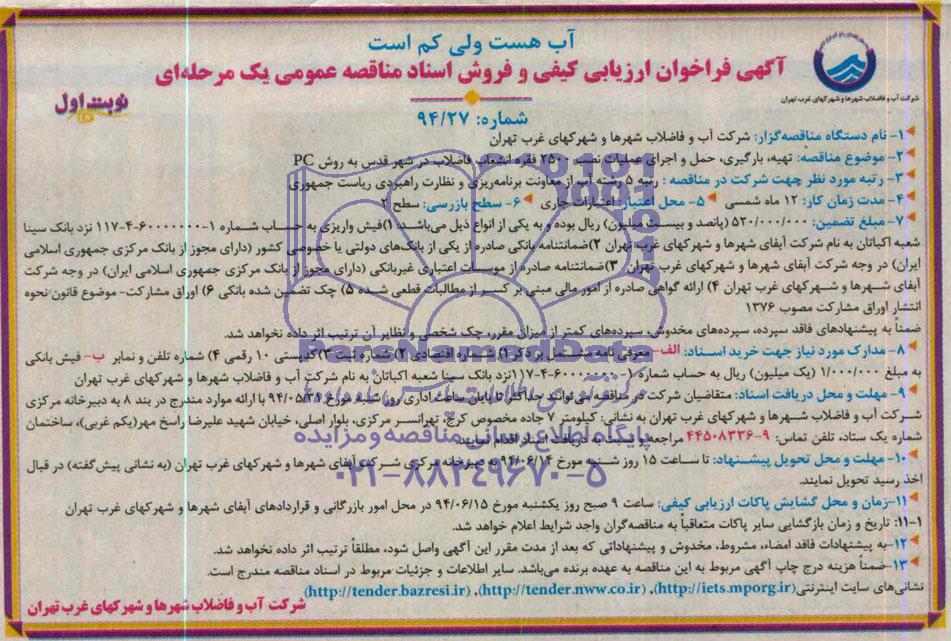 آب هست ولی کم است
آگهی فراخوان ارزیابی کیفی و فروش اسناد مناقصه عمومی یک مرحله‌ای
شرکت آب و فاضلاب شهرها و شهرکهای غرب تهران
نوبت اول
شماره: ۹۴/۲۷
۱- نام دستگاه مناقصه‌گزار: شرکت آب و فاضلاب شهرها و شهرکهای غرب تهران
۲- موضوع مناقصه: تهیه، بارگیری، حمل و اجرای عملیات نصب ۲۵۰ فقره انشعاب فاضلاب در شهر قدس به روش PC
۳- رتبه مورد نظر جهت شرکت در مناقصه : رتبه ۵ رشته آب از معاونت برنامه‌ریزی و نظارت راهبردی ریاست جمهوری
۴- مدت زمان کار: ۱۲ ماه شمسی ۵- محل اعتبار: اعتبارات جاری ۶- سطح بازرسی: سطح ۲
۷- مبلغ تضمین: ۵۲۰/۰۰۰/۰۰۰ (پانصد و بیست میلیون) ریال بوده و به یکی از انواع ذیل می‌باشد: ۱)فیش واریزی به حساب شماره ۱-۶۰۰۰۰۰۰۰-۴-۱۱۷ نزد بانک سینا
شعبه اکباتان به نام شرکت آبفای شهرها و شهرکهای غرب تهران ۲)ضمانتنامه بانکی صادره از یکی از بانک‌های دولتی یا خصوصی کشور (دارای مجوز از بانک مرکزی جمهوری اسلامی
ایران) در وجه شرکت آبفای شهرها و شهرکهای غرب تهران ۳)ضمانتنامه صادره از موسسات اعتباری غیربانکی (دارای مجوز از بانک مرکزی جمهوری اسلامی ایران) در وجه شرکت
آبفای شهرها و شهرکهای غرب تهران ۴) ارائه گواهی صادره از امور مالی مبنی بر کسر از مطالبات قطعی شده ۵) چک تضمین شده بانکی ۶) اوراق مشارکت- موضوع قانون نحوه
انتشار اوراق مشارکت مصوب ۱۳۷۶
ضمناً به پیشنهادهای فاقد سپرده، سپرده‌های مخدوش، سپرده‌های کمتر از میزان مقرر، چک شخصی و نظایر آن ترتیب اثر داده نخواهد شد.
۸- مدارک مورد نیاز جهت خرید اسناد: الف- معرفی نامه مشتمل بر ذکر ۱) شماره اقتصادی ۲) شماره ثبت ۳)کدپستی ۱۰ رقمی ۴) شماره تلفن و نمابر ب- فیش بانکی
به مبلغ ۱/۰۰۰/۰۰۰ (یک میلیون) ریال به حساب شماره ۱-۶۰۰۰۰۰۰۰-۴-۱۱۷ نزد بانک سینا شعبه اکباتان به نام شرکت آب و فاضلاب شهرها و شهرکهای غرب تهران
۹- مهلت و محل دریافت اسناد: متقاضیان شرکت در مناقصه می‌توانند حداکثر تا پایان ساعت اداری روز شنبه مورخ ۹۴/۰۵/۳۱ با ارائه موارد مندرج در بند ۸ به دبیرخانه مرکزی
شرکت آب و فاضلاب شهرها و شهرکهای غرب تهران به نشانی: کیلومتر ۷ جاده مخصوص کرج، تهرانسر مرکزی، بلوار اصلی، خیابان شهید علیرضا راسخ مهر(یکم غربی)، ساختمان
شماره یک ستاد، تلفن تماس: ۹-۴۴۵۰۸۳۳۶ مراجعه و نسبت به دریافت اسناد اقدام نمایند.
۱۰- مهلت و محل تحویل پیشنهاد: تا ساعت ۱۵ روز شنبه مورخ ۹۴/۰۶/۱۴ به دبیرخانه مرکزی شرکت آبفای شهرها و شهرکهای غرب تهران (به نشانی پیش‌گفته) در قبال
اخذ رسید تحویل نمایند.
۱۱-زمان و محل گشایش پاکات ارزیابی کیفی: ساعت ۹ صبح روز یکشنبه مورخ ۹۴/۰۶/۱۵ در محل امور بازرگانی و قراردادهای آبفای شهرها و شهرکهای غرب تهران
۱۱-۱: تاریخ و زمان بازگشایی سایر پاکات متعاقباً به مناقصه‌گران واجد شرایط اعلام خواهد شد.
۱۲-به پیشنهادات فاقد امضاء، مشروط، مخدوش و پیشنهاداتی که بعد از مدت مقرر این آگهی واصل شود، مطلقاً ترتیب اثر داده نخواهد شد.
۱۳-ضمناً هزینه درج چاپ آگهی مربوط به این مناقصه به عهده برنده می‌باشد. سایر اطلاعات و جزئیات مربوط در اسناد مناقصه مندرج است.
نشانی‌های سایت اینترنتی(http://iets.mporg.ir)، (http://tender.nww.co.ir)، (http://tender.bazresi.ir)
شرکت آب و فاضلاب شهرها و شهرکهای غرب تهران
ParsNamadData
پایگاه اطلاع رسانی مناقصه و مزایده
۰۲۱-۸۸۳۴۹۶۷۰-۵